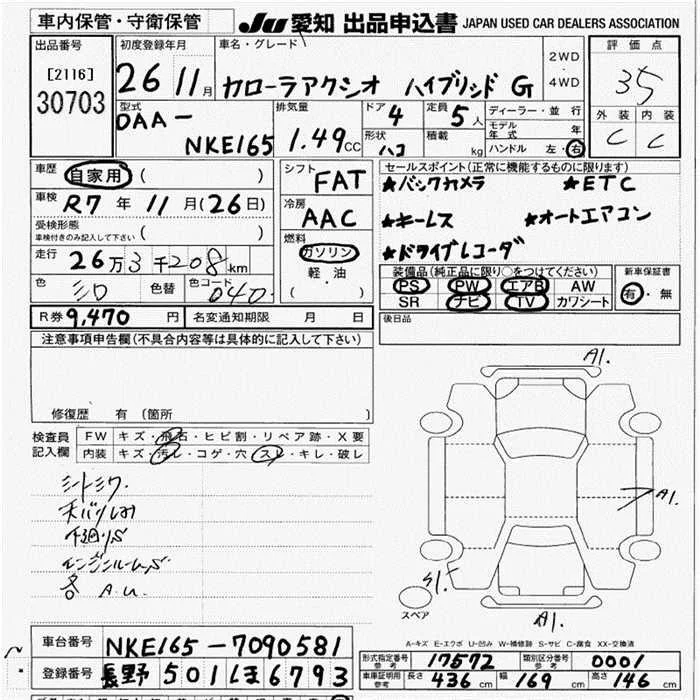 車内保管・守衛保管
JU 愛知 出品申込書 JAPAN USED CAR DEALERS ASSOCIATION
出品番号
[2116]
30703
初度登録年月
26 11月
車名・グレード
カローラアクシオ ハイブリッド G
2WD
・
4WD
評価点
35
外装 内装
C C
型式
DAA-
NKE165
排気量
1.49CC
ドア 4
定員 5人
形状 ハコ
積載 kg
ディーラー・並行
モデル年式 年
ハンドル 左・右
車歴
自家用 ( )
車検 R7年 11月(26日)
受検形態
車検付きのみ記入して下さい ( )
走行 26万3千208km
色 シロ 色替 色コード 040
シフト FAT
冷房 AAC
燃料
ガソリン
軽・油
( )
セールスポイント(正常に機能するものに限ります)
★バックカメラ ★ETC
★キーレス ★オートエアコン
★ドライブレコーダ
装備品(純正品に限り○をつけてください)
PS PW エアB AW
SR ナビ TV カワシート
新車保証書
有・無
R券 9,470 円 名変通知期限 月 日
後日品
注意事項申告欄(不具合内容等は具体的に記入して下さい)
修復歴 有 (箇所 )
検査員記入欄
FW キズ・飛石・ヒビ割・リペア跡・X要
内装 キズ・汚レ・コゲ・穴・スレ・キレ・破レ
シートシワ
下廻りS
エンジンルームS
各 A.U.
A1.
A1.
S1.
A1.
スペア
A-キズ E-エクボ U-凹み W-補修跡 S-サビ C-腐食 XX-交換済
車台番号 NKE165-7090581
登録番号 長野 501 ほ 6793
形式指定番号 参考 17572 類別区分番号 参考 0001
車庫証明用 参考 長さ 436 cm 幅 169 cm 高さ 146 cm